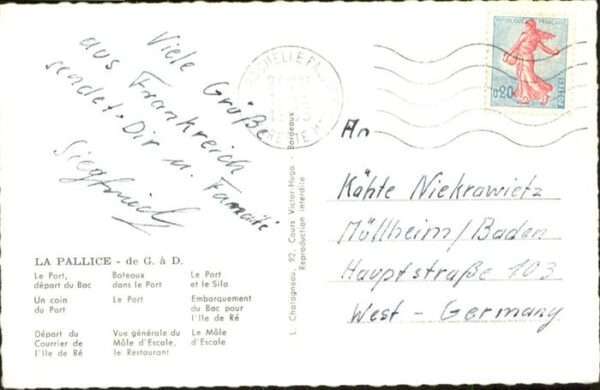 Viele Grüße
aus Frankreich
sendet Dir u. Familie
Siegfried
LA PALLICE - de G. à D.
Le Port, départ du Bac
Bateaux dans le Port
Le Port et le Silo
Un coin du Port
Le Port
Embarquement du Bac pour l'Ile de Ré
Départ du Courrier de l'Ile de Ré
Vue générale du Môle d'Escale, le Restaurant
Le Môle d'Escale
L. Chatagneau, 92, Cours Victor-Hugo - Bordeaux
Reproduction interdite
0,20
An
Käthe Niekrawietz
Müllheim/Baden
Hauptstraße 103
West - Germany